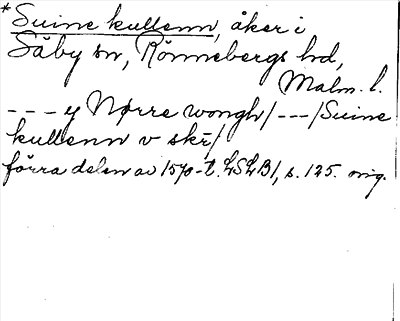 * Suine kullenn, åker i
Säby sn, Rönnebergs hd,
Malm. l.
--- y Nørre wongh/ ---/Suine
kullenn v skr/
förra delen av 1570-t. LSLB1, s. 125. orig.